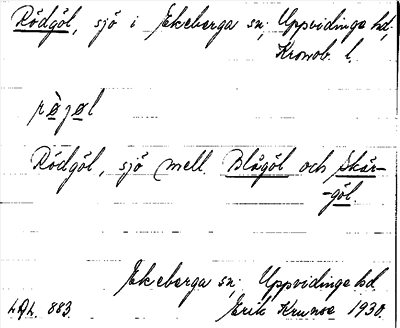 Rödgöl, sjö i Ekeberga sn; Uppvidinge hd;
Kronob. l.
rø̀jøl
Rödgöl, sjö mell. Blågöl och Skär-
-göl.
Ekeberga sn; Uppvidinge hd.
LAL. 883. Erik 1930.